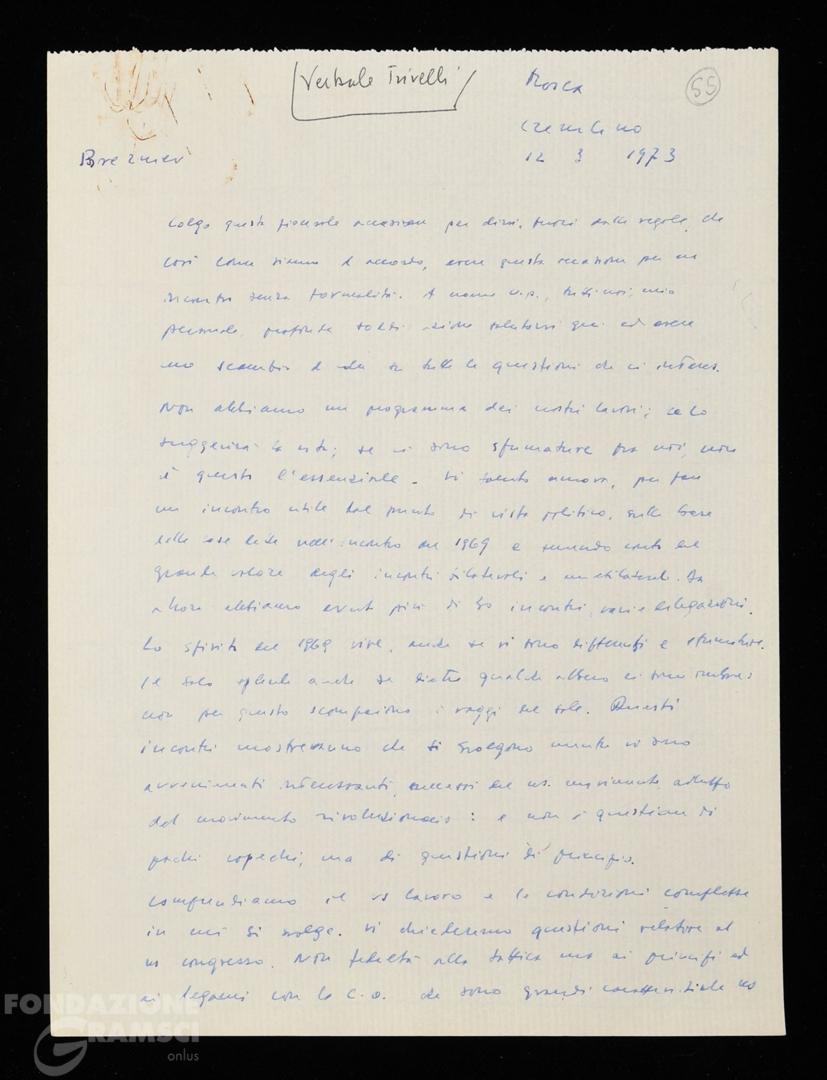 Verbale Trivelli
Mosca
55
Cremlino
12 3 1973
Breznev
Colgo questa piacevole occasione per dirvi, fuori dalle regole, che
così come siamo d'accordo, avere questa occasione per un
incontro senza formalità. A nome u.p., tutti noi, mio
personale, profonda soddisfazione salutarvi qui ed avere
uno scambio d'idee su tutte le questioni che ci interess.
Non abbiamo un programma dei nostri lavori; ce lo
suggerirà la vita; se vi sono sfumature fra noi, non
è questo l'essenziale. Vi saluto ancora, per fare
un incontro utile dal punto di vista politico, sulla base
delle cose dette nell'incontro del 1969 e tenendo conto del
grande valore degli incontri bilaterali e multilaterali. Da
allora abbiamo avuto più di incontri, varie delegazioni.
Lo spirito del 1969 vive, anche se vi sono differenze e sfumature.
Il sole splende anche se dietro qualche albero ci sono ombre:
non per questo scompaiono i raggi del sole. Questi
incontri mostreranno che si svolgono mentre vi sono
avvenimenti interessanti, successi del ns. movimento,
del movimento rivoluzionario: e non è question di
pochi copechi, ma di questioni di principio.
Comprendiamo il vs lavoro e le condizioni complesse
in cui si svolge. Vi chiederemo questioni relative al
vs congresso. Non fedeltà alla tattica ma ai principi ed
ai legami con la c.o. che sono grandi
FONDAZIONE
GRAMSCI
onlus